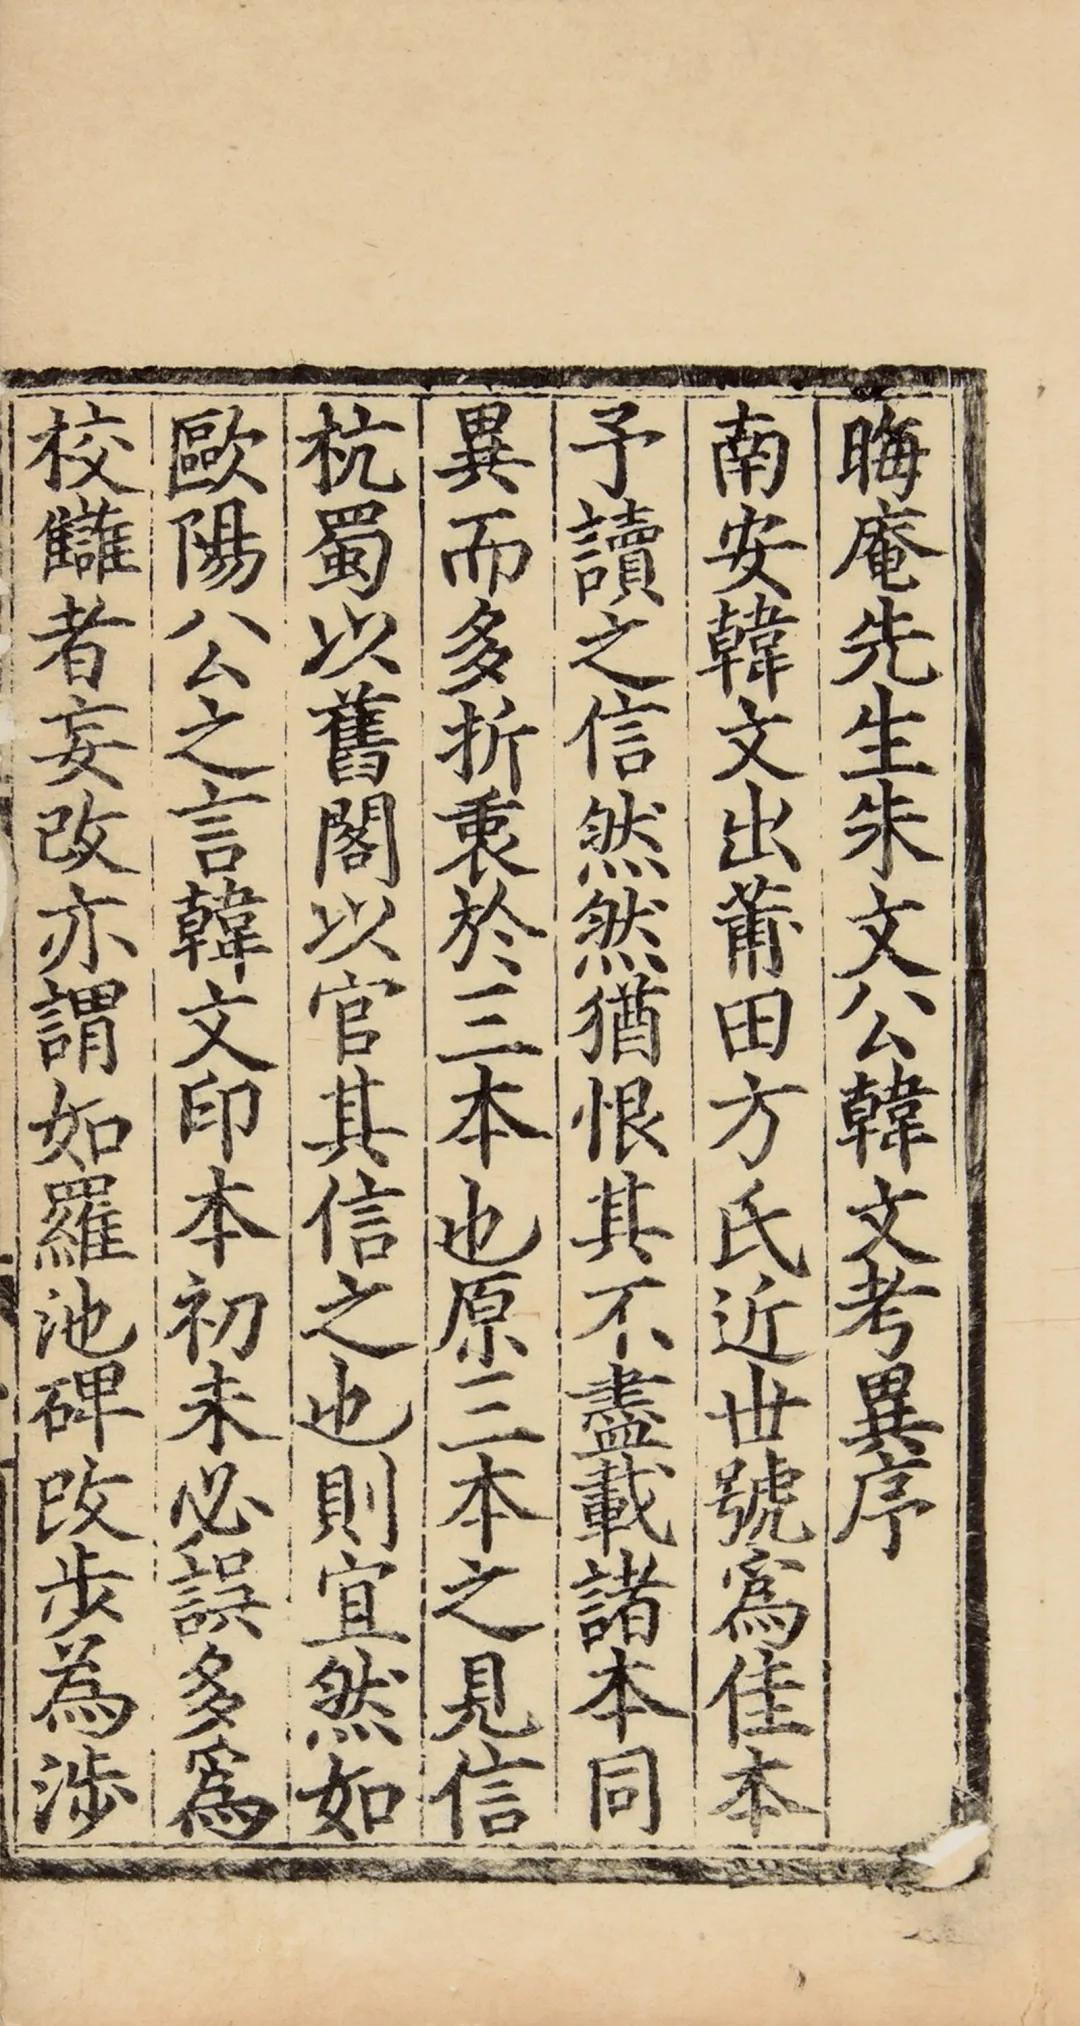 晦庵先生朱文公韓文考異序
南安韓文出莆田方氏近世號爲佳本
予讀之信然然猶恨其不盡載諸本同
異而多折衷於三本也原三本之見信
杭蜀以舊閣以官其信之也則宜然如
歐陽公之言韓文印本初未必誤多爲
校讎者妄改亦謂如羅池碑改步為涉